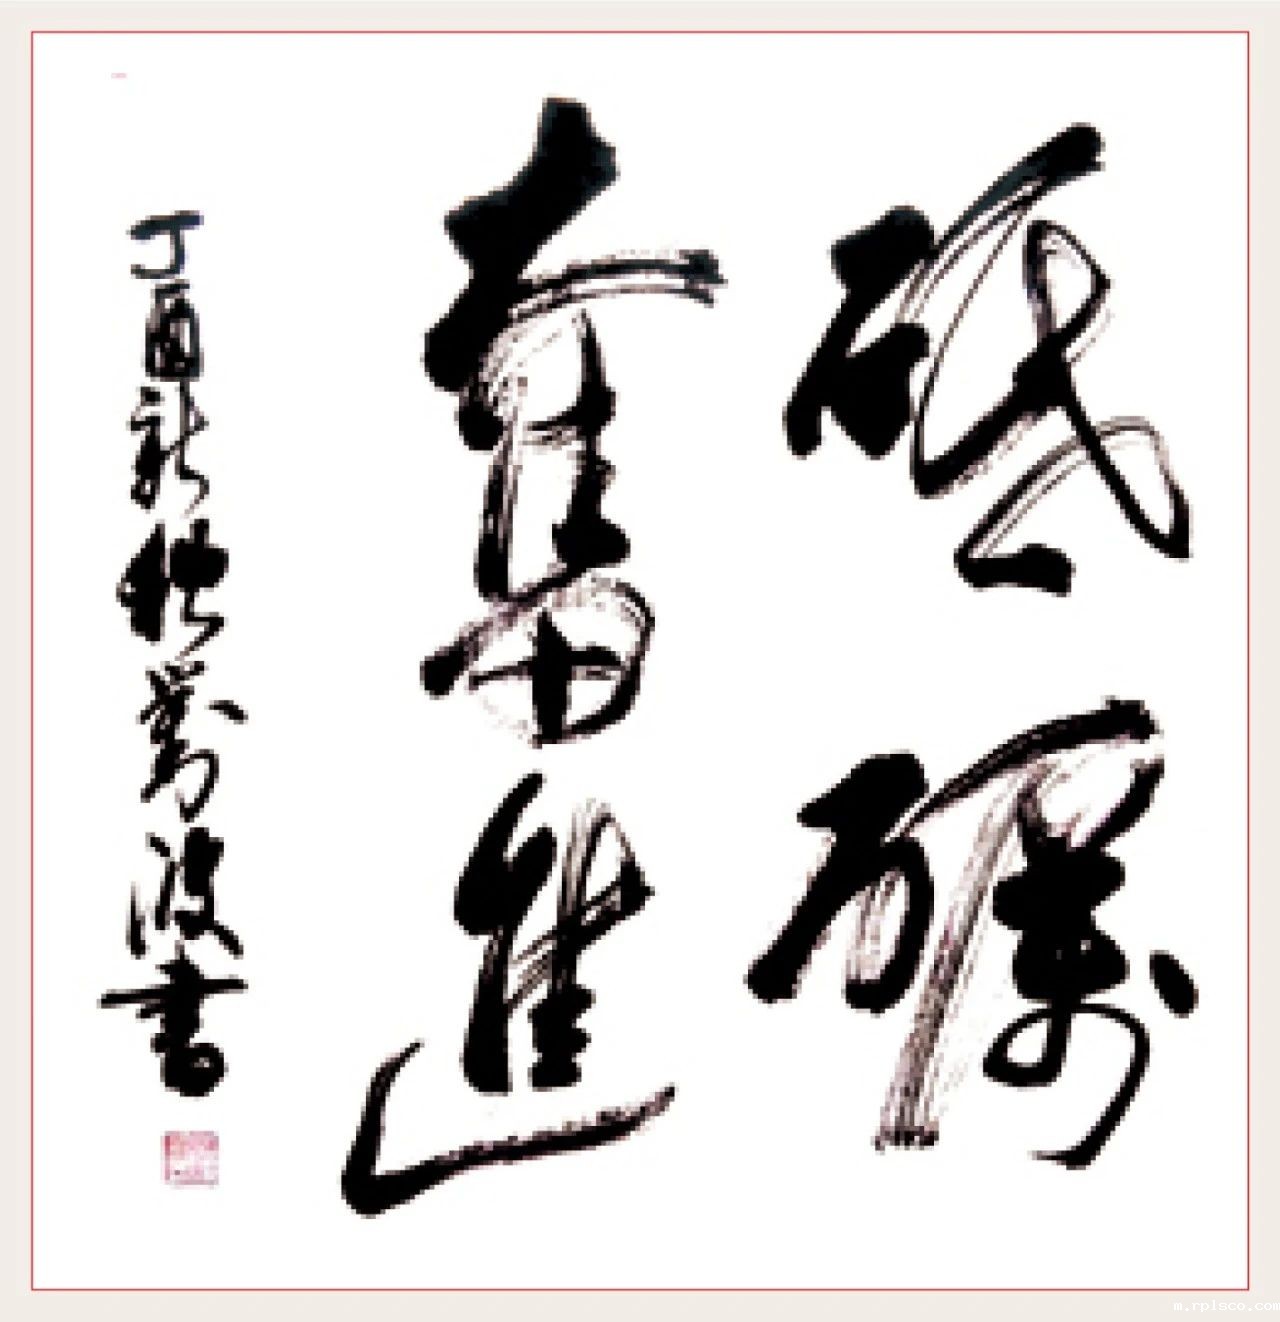 砥礪
奮進
丁酉新秋萬波書
m.rplsco.com